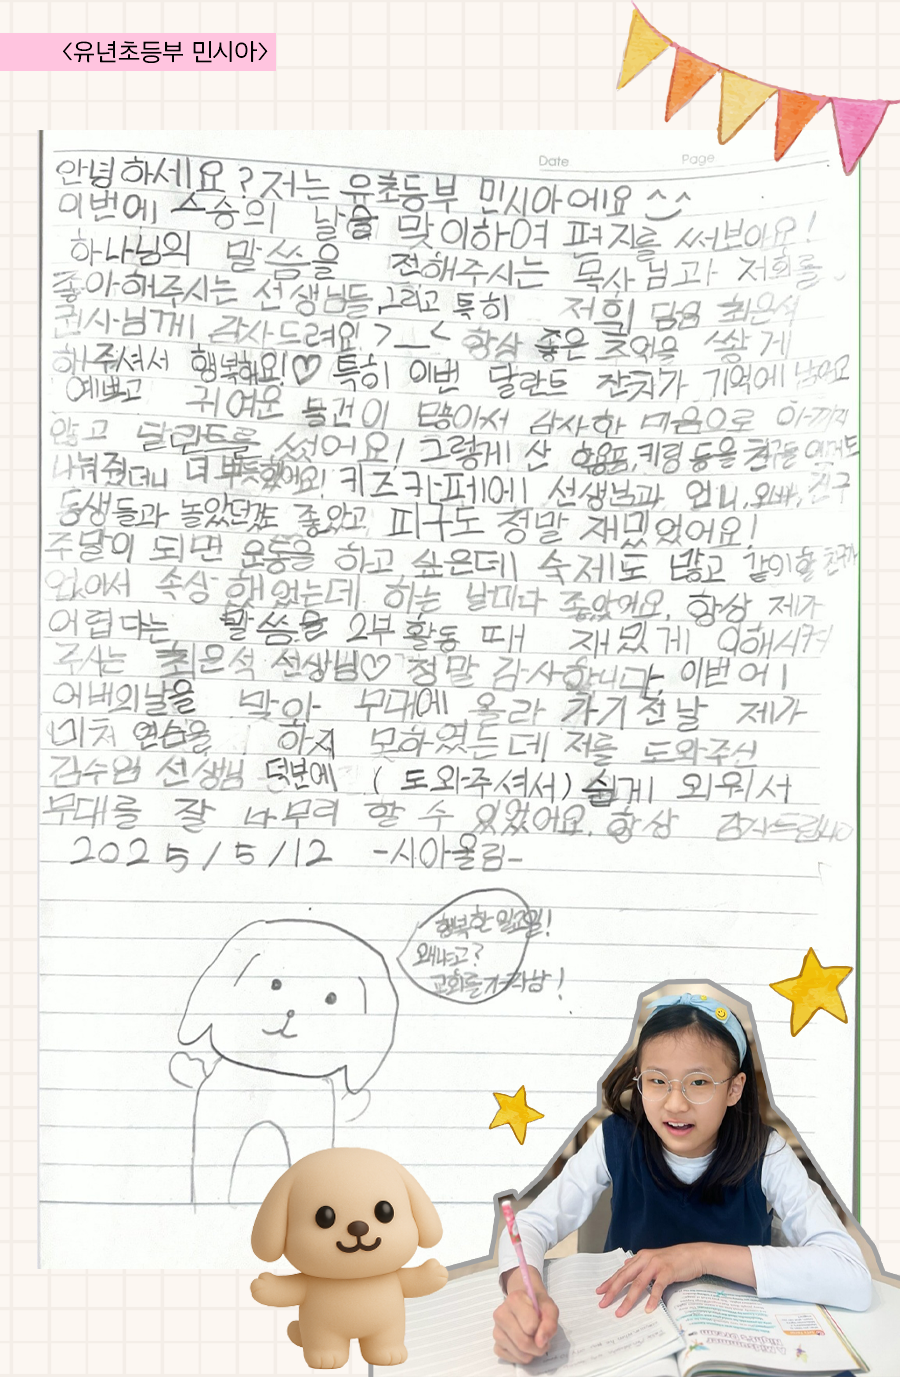 <유년초등부 민시아>
Date Page
안녕하세요? 저는 유초등부 민시아에요 ^^
이번에 스승의 날을 맞이하여 편지를 써보아요!
하나님의 말씀을 전해주시는 목사님과 저희를
좋아해주시는 선생님들, 그리고 특히 저희 담임 최은석
권사님께 감사드려요. >_< 항상 좋은 추억을 쌓게
해주셔서 행복해요!♡ 특히 이번 달란트 잔치가 기억에 남아요
예쁘고 귀여운 물건이 많아서 감사한 마음으로 아끼지
않고 달란트를 썼어요! 그렇게 산 학용품, 키링 등을 친구들
나눠줬더니 너 뿌듯했어요! 키즈카페에 선생님과 언니, 오빠, 친구
동생들과 놀았던것도 좋았고 피구도 정말 재밌었어요!
주말이 되면 운동을 하고 싶은데 숙제도 많고 같이할 친구가
없어서 속상했었는데 하는 날마다 좋았어요. 항상 제가
어렵다는 말씀을 2부 활동 때 재밌게 이해시켜
주시는 최은석 선생님♡ 정말 감사합니다. 이번 어ㅣ
어버의날을 맞아 무대에 올라가기 전날 제가
미처 연습을 하지 못하였는데 저를 도와주신
김수임 선생님 덕분에 (도와주셔서) 쉽게 외워서
무대를 잘 마무리 할 수 있었어요. 항상 감사드립니다
2025/5/12 -시아올림-
행복한 일요일!
왜냐고?
교회를 가잖아!